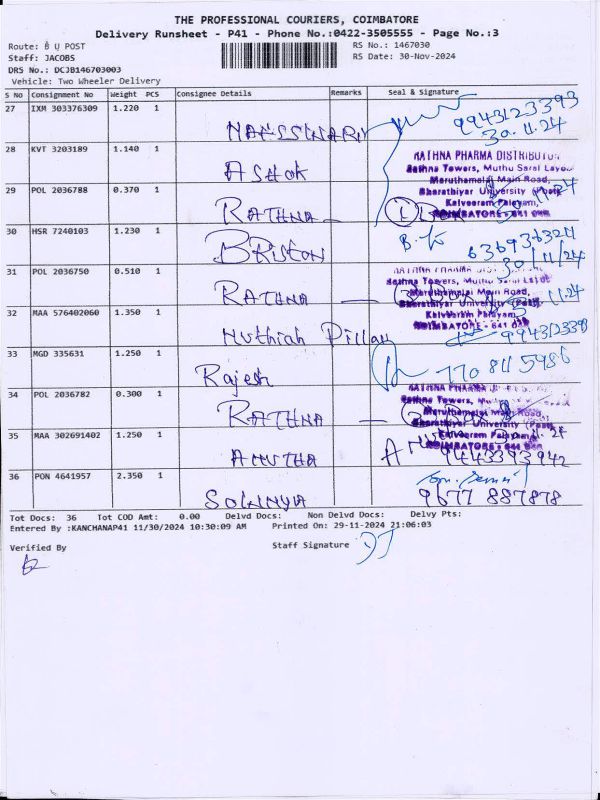 THE PROFESSIONAL COURIERS, COIMBATORE
Delivery Runsheet - P41 - Phone No.:0422-3505555 - Page No.:3
Route: B U POST
RS No.: 1467030
Staff: JACOBS
RS Date: 30-Nov-2024
DRS No.: DCJB146703003
Vehicle: Two Wheeler Delivery
S No Consignment No Weight PCS Consignee Details Remarks Seal & Signature
27 IXM 303376309 1.220 1
9943123393
30.11.24
28 KVT 3203189 1.140 1 ASHOK
RATHNA PHARMA DISTRIBUTOR
Rathna Towers, Muthu Saral Layout
Maruthamalai Main Road,
Bharathiyar University (Post)
Kalveeram Palayam,
COIMBATORE - 641 046
29 POL 2036788 0.370 1 RATHNA
30 HSR 7240103 1.230 1 BRISTON
30/11/24
31 POL 2036750 0.510 1 RATHNA
Maruthamalai Main Road,
Bharathiyar University (Post)
Kalveeram Palayam,
32 MAA 576402060 1.350 1 Muthiah Pillay
33 MGD 335631 1.250 1 Rajesh
770 811 5986
34 POL 2036782 0.300 1 RATHNA
Rathna Towers,
Maruthamalai Main Road,
Bharathiyar University (Post)
Kalveeram Palayam,
35 MAA 302691402 1.250 1 AMUTHA
9443393942
36 PON 4641957 2.350 1 SOWNYA
9677 887878
Tot Docs: 36 Tot COD Amt: 0.00 Delvd Docs: Non Delvd Docs: Delvy Pts:
Entered By :KANCHANAP41 11/30/2024 10:30:09 AM Printed On: 29-11-2024 21:06:03
Verified By
Staff Signature